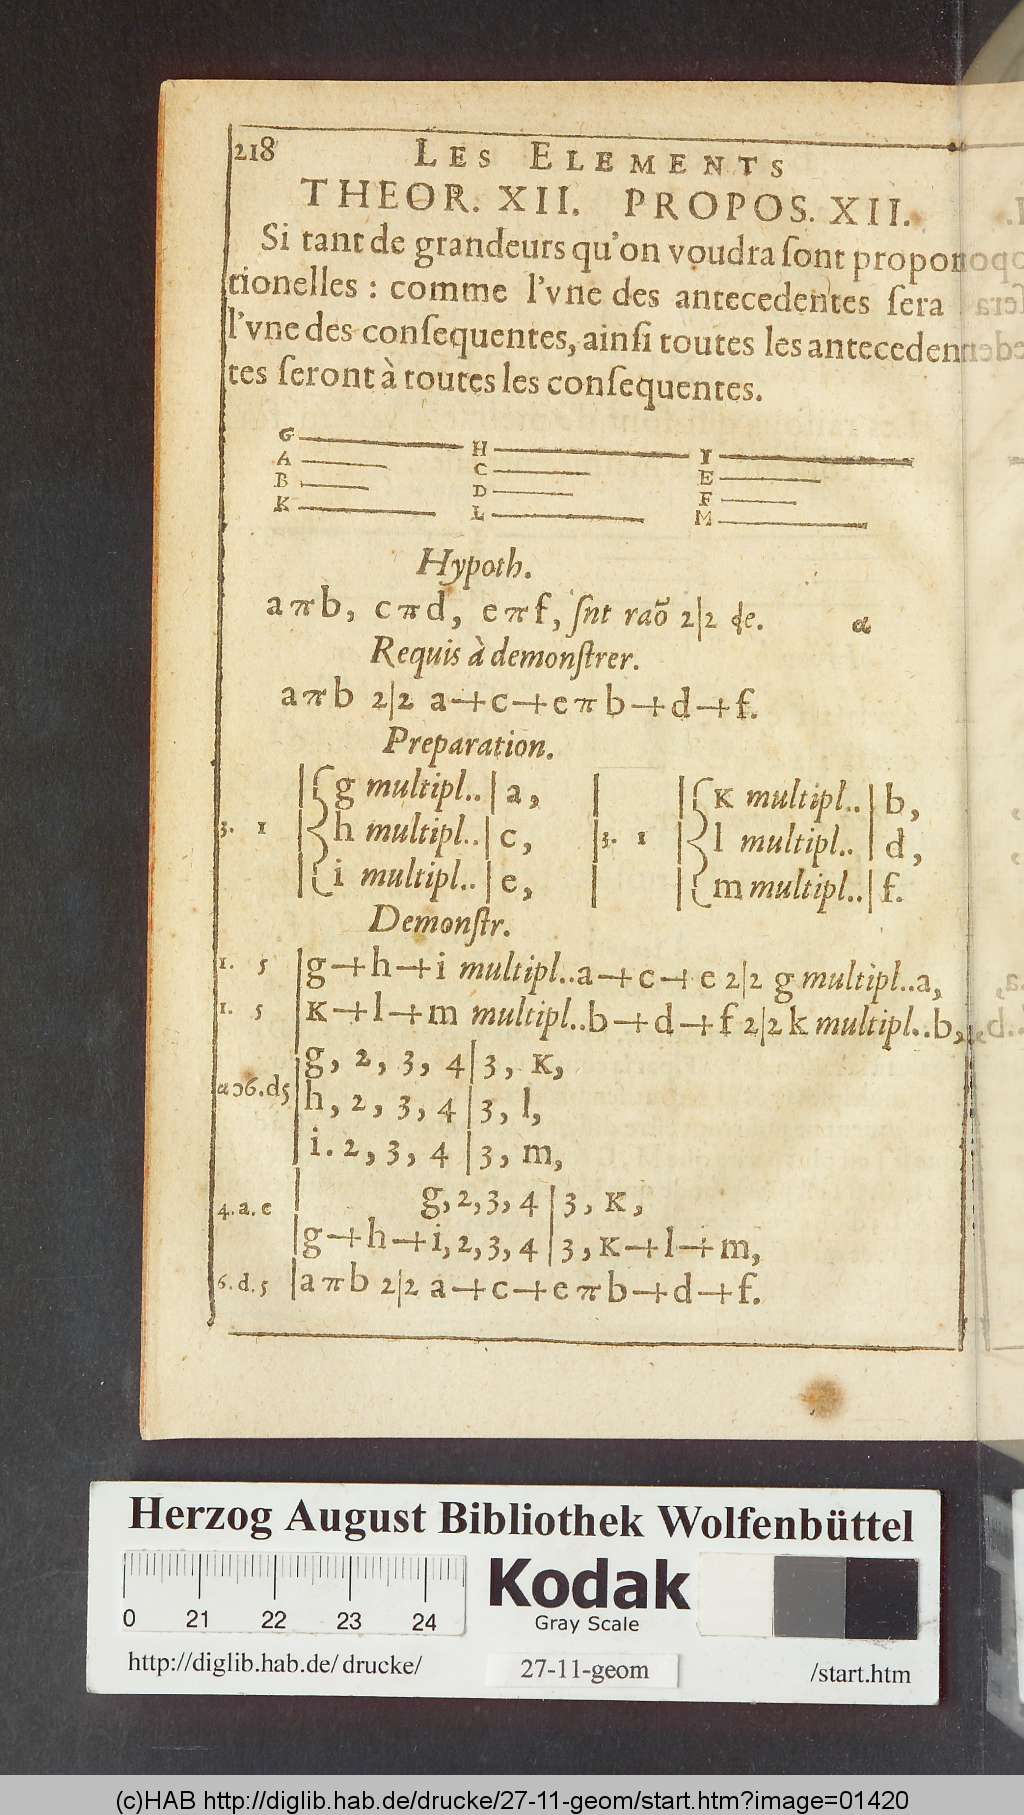 218 LES ELEMENTS
THEOR. XII. PROPOS. XII.
Si tant de grandeurs qu'on voudra ſont propor
tionelles : comme l'vne des antecedentes ſera
l'vne des conſequentes, ainſi toutes les anteceden
tes ſeront à toutes les conſequentes.
G H I
A C E
B D F
K L M
Hypoth.
a π b, c π d, e π f, ſnt raõ 2|2 de. α
Requis à demonſtrer.
a π b 2|2 a+c+e π b+d+f.
Preparation.
g multipl..|a, | K multipl..|b,
3. 1 h multipl..|c, |3. 1 l multipl..|d,
i multipl..|e, | m multipl..|f.
Demonſtr.
1. 5 |g+h+i multipl..a+c+e 2|2 g multipl..a,
1. 5 |K+l+m multipl..b+d+f 2|2 k multipl..b,
g, 2, 3, 4|3, K,
αɔ6.d5 |h, 2, 3, 4|3, l,
|i. 2, 3, 4|3, m,
4. a. e | g, 2, 3, 4|3, K,
|g+h+i, 2, 3, 4|3, K+l+m,
6. d. 5 |a π b 2|2 a+c+e π b+d+f.
Herzog August Bibliothek Wolfenbüttel
0 21 22 23 24
Kodak
Gray Scale
http://diglib.hab.de/drucke/ 27-11-geom /start.htm
(c)HAB http://diglib.hab.de/drucke/27-11-geom/start.htm?image=01420